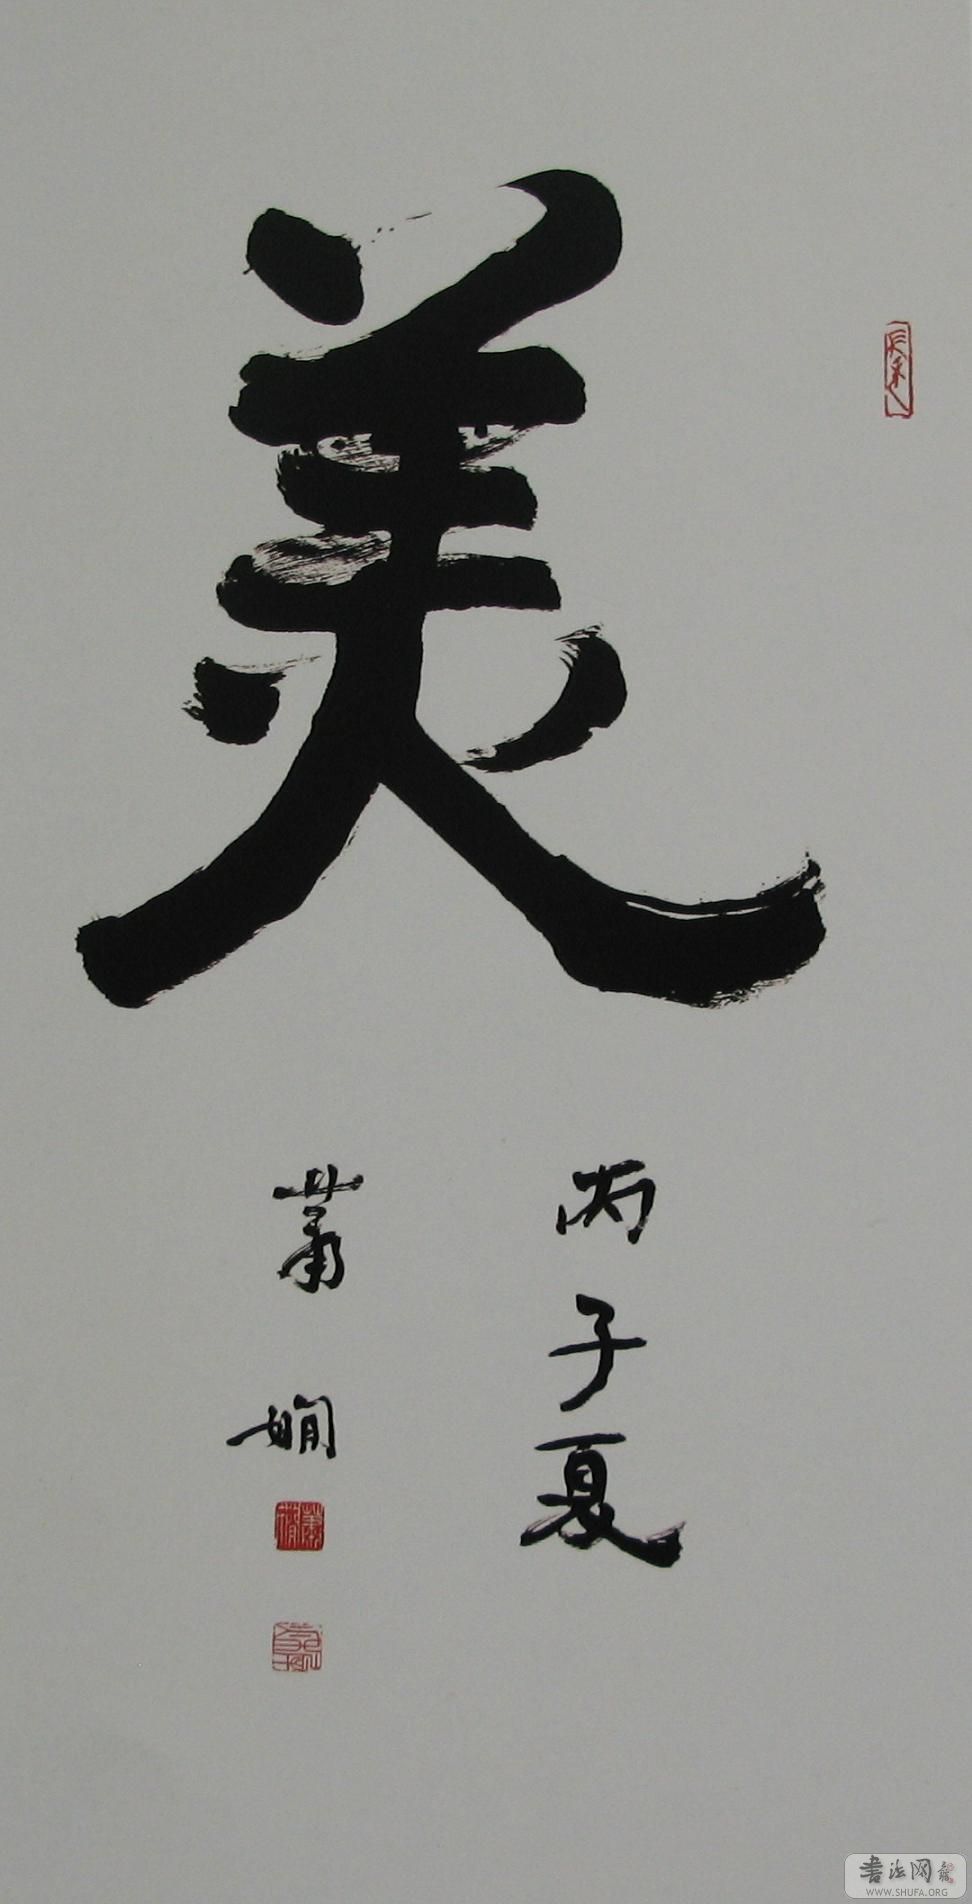 美
丙子夏
萧娴
书法网
WWW.SHUFA.ORG